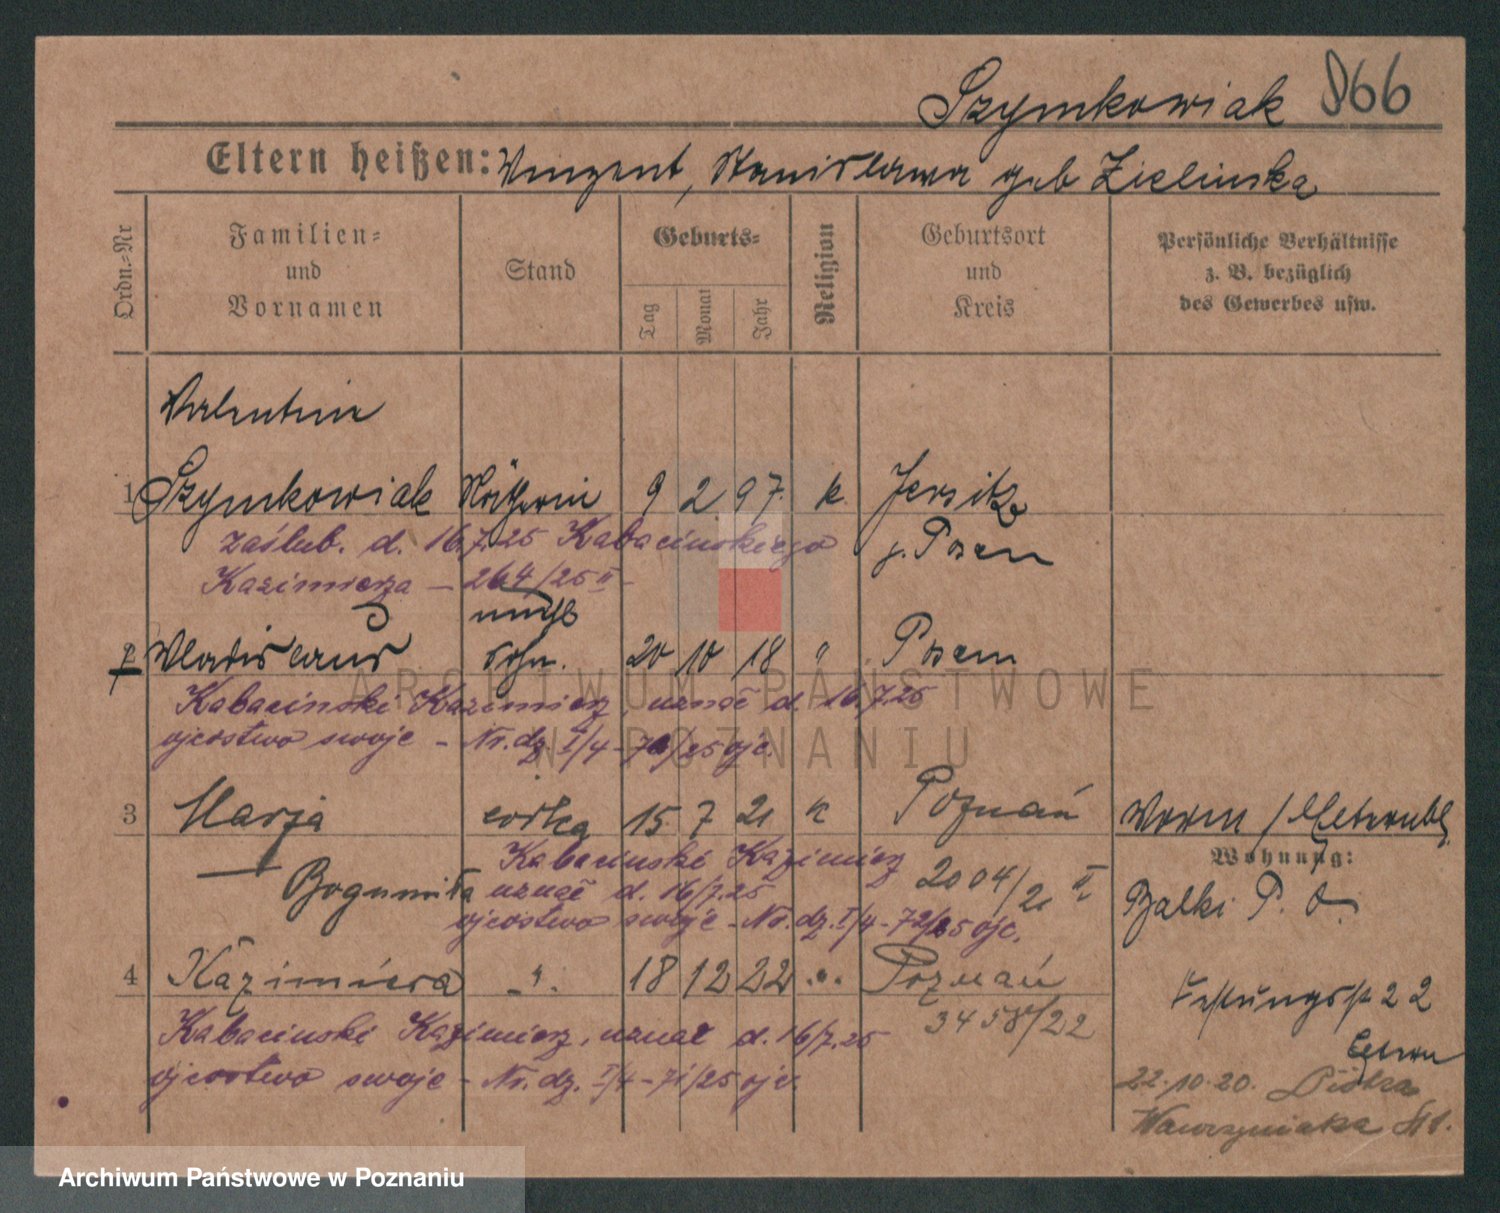 Szymkowiak 866
Eltern heißen: Vinzent, Stanislawa geb Zielinska
Ordn.-Nr
Familien-
und
Vornamen
Stand
Geburts-
Tag
Monat
Jahr
Religion
Geburtsort
und
Kreis
Persönliche Verhältnisse
z. B. bezüglich
des Gewerbes usw.
Valentine
1 Szymkowiak Näherin 9 2 97. k. Jersitz
zaślub. d. 16.7.25 Kabacinskiego
Kazimierza — 264/25 II — Posen
2 Wladislaus unehl Sohn. 20 10 18 " Posen
Kabacinski Kazimierz, uznał d. 16.7.25
ojcostwo swoje - Nr. dz. I/4 - 70/25 ojc.
3 Marja córka 15. 7 21 k Poznań
Bogumiła
2004/21 II
Kabacinski Kazimierz
uznał d. 16/7.25
ojcostwo swoje - Nr. dz. I/4 - 72/25 ojc.
4 Kazimiera " 18 12 22 " Poznań
3458/22
Kabacinski Kazimierz, uznał d. 16/7.25
ojcostwo swoje - Nr. dz. I/4 - 71/25 ojc.
Wohnung:
Festungsstr 22
Eltern
22.10.20.
Wawrzyniaka
ARCHIWUM PAŃSTWOWE
W POZNANIU
Archiwum Państwowe w Poznaniu